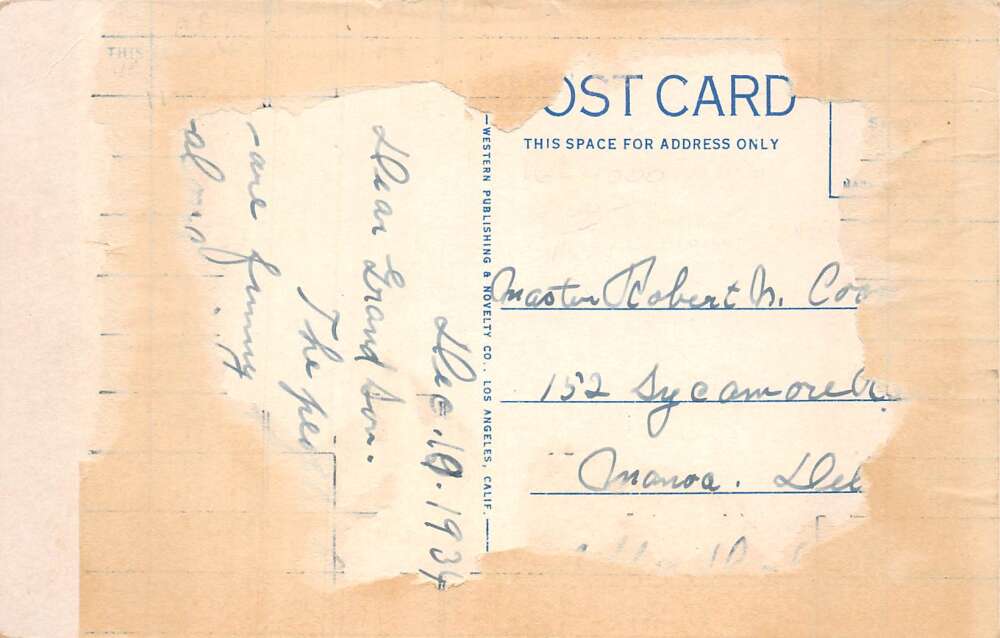 THIS
OST CARD
THIS SPACE FOR ADDRESS ONLY
WESTERN PUBLISHING & NOVELTY CO., LOS ANGELES, CALIF.
Dec. 10. 1934
Dear Grand Son.
The peo
are funny
Master Robert N. Coo
152 Sycamore
Manoa. Del